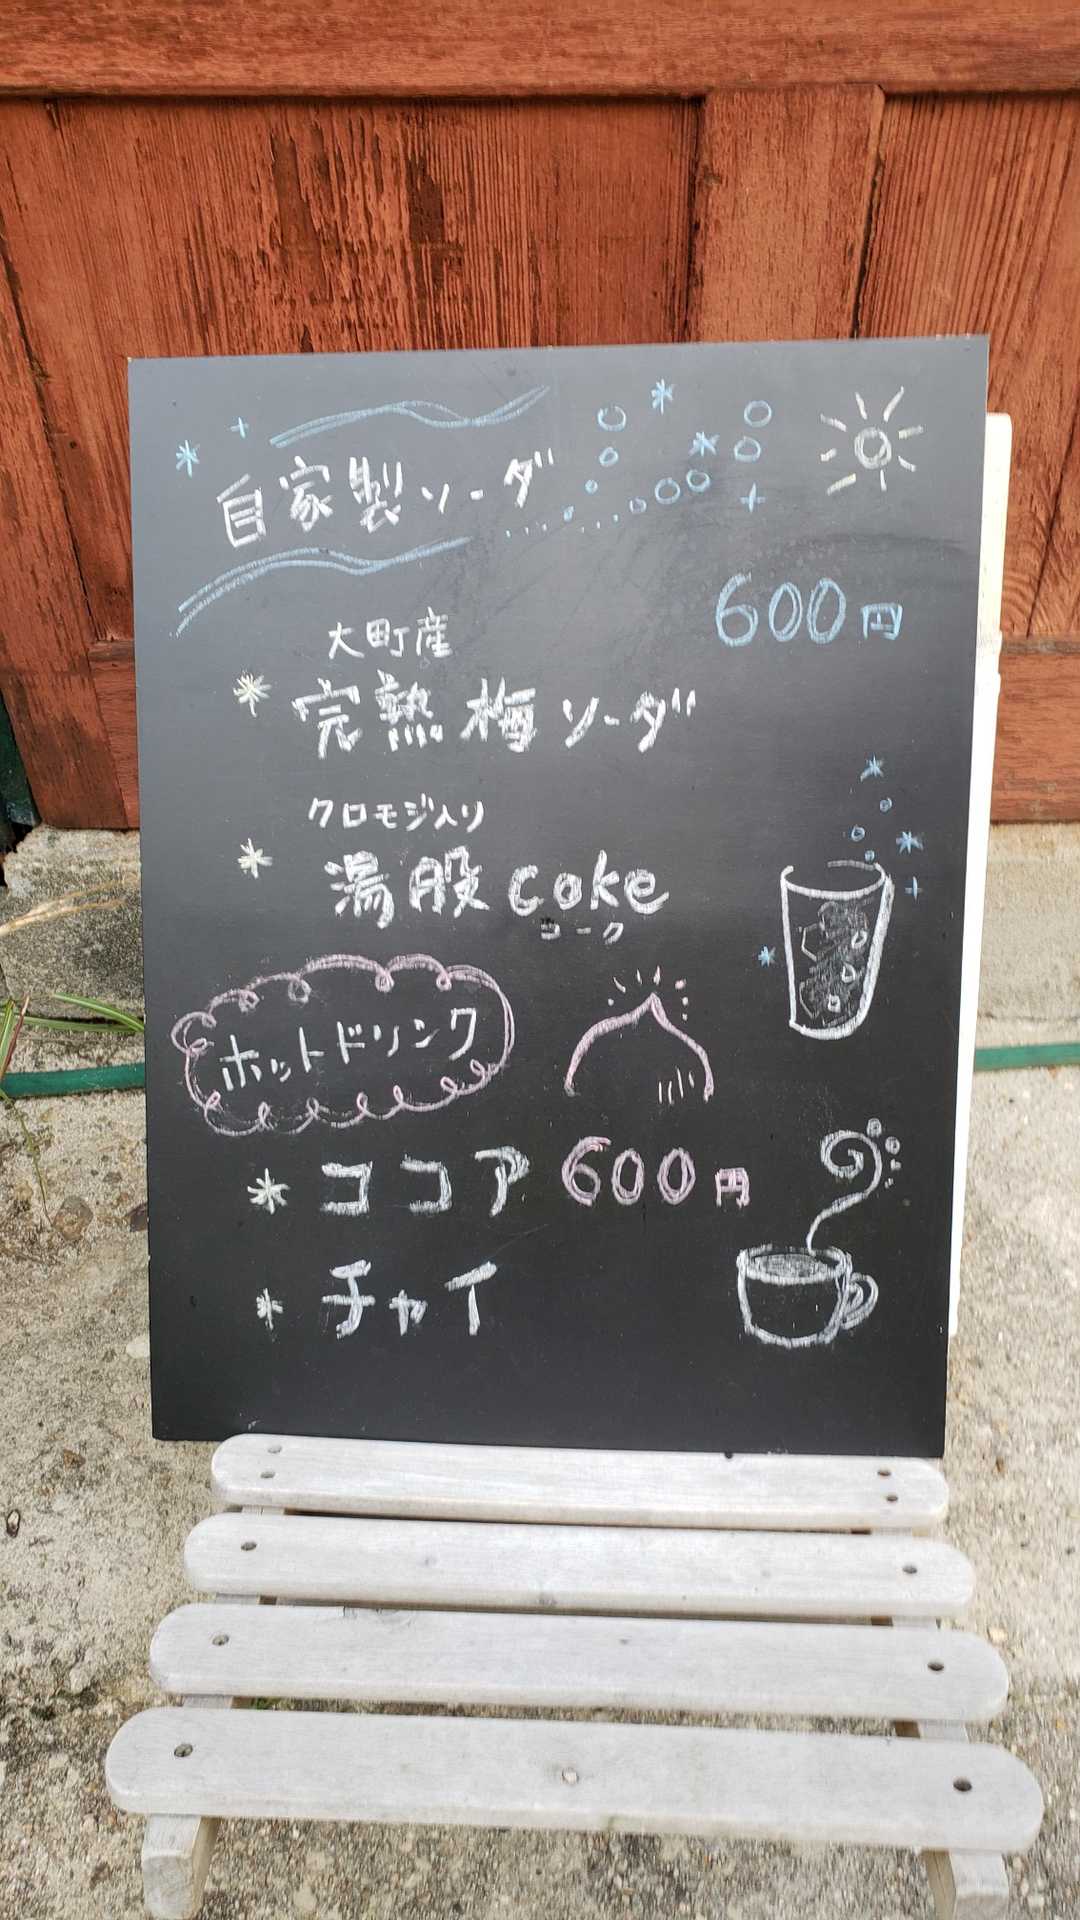 自家製ソーダ
600円
大町産
完熟梅ソーダ
クロモジ入り
湯股coke
コーク
ホットドリンク
ココア 600円
チャイ